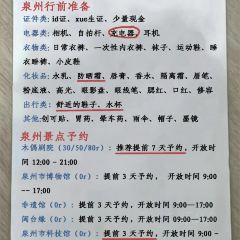 泉州行前准备
证件类: id证、xue生证、少量现金
电器类: 相机、自拍杆、充电器、耳机
衣物类: 日常衣裤、一次性内衣裤、袜子、运动鞋、睡
衣睡裤、小皮鞋
化妆品: 水乳、防晒霜、唇膏、香水、隔离霜、眉笔、
粉底液、高光、眼影盘、眼线笔、腮红、口红、修容
出行类: 舒适的鞋子、水杯
其他: 创可贴、胃药、晕车药、雨伞、帽子、墨镜
泉州景点预约
木偶剧院 (30/50/80r) : 推荐提前 7 天预约, 开放时
间 12:00 - 21:00
泉州市博物馆 (0r) : 提前 3 天预约, 开放时间 9:00
-17:00
非遗馆 (0r) : 提前 3 天预约, 开放时间 9:00—17:00
闽台缘 (0r) : 提前 3 天预约, 开放时间 09:00—17:00
泉州市科技馆 (0r) : 提前 3 天预约, 开放时间 9:00